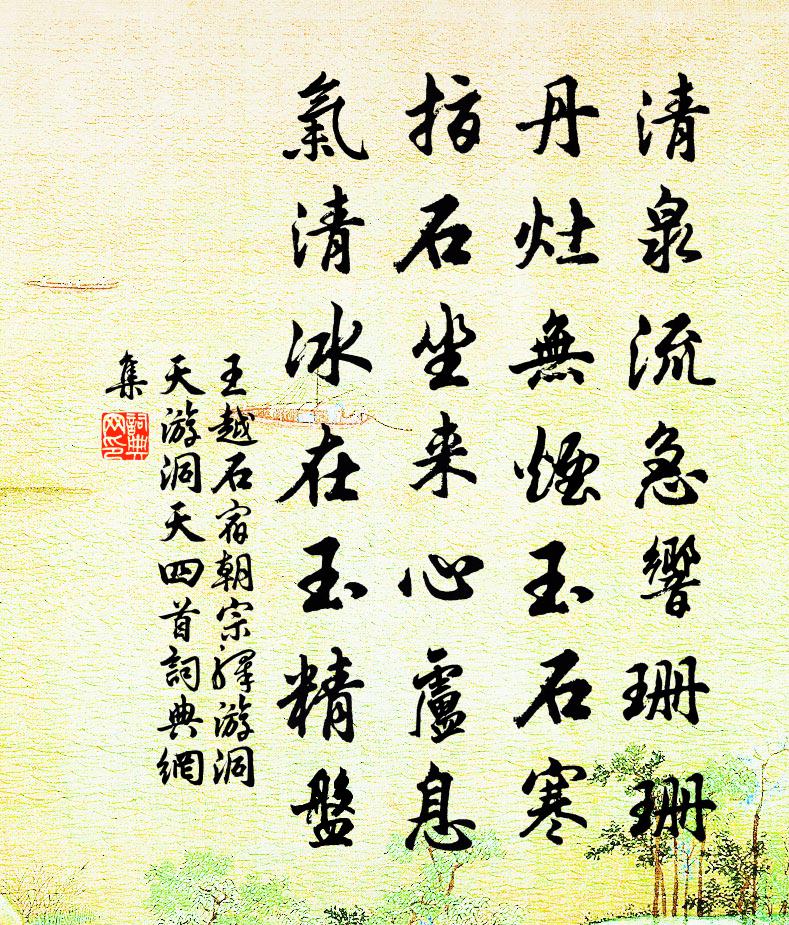 清泉流急響珊珊
丹灶無煙玉石寒
指石坐来心慮息
氣清冰在玉精盤
王越石宿朝宗驛游洞
天游洞天四首詞典網
集
詞典
网印